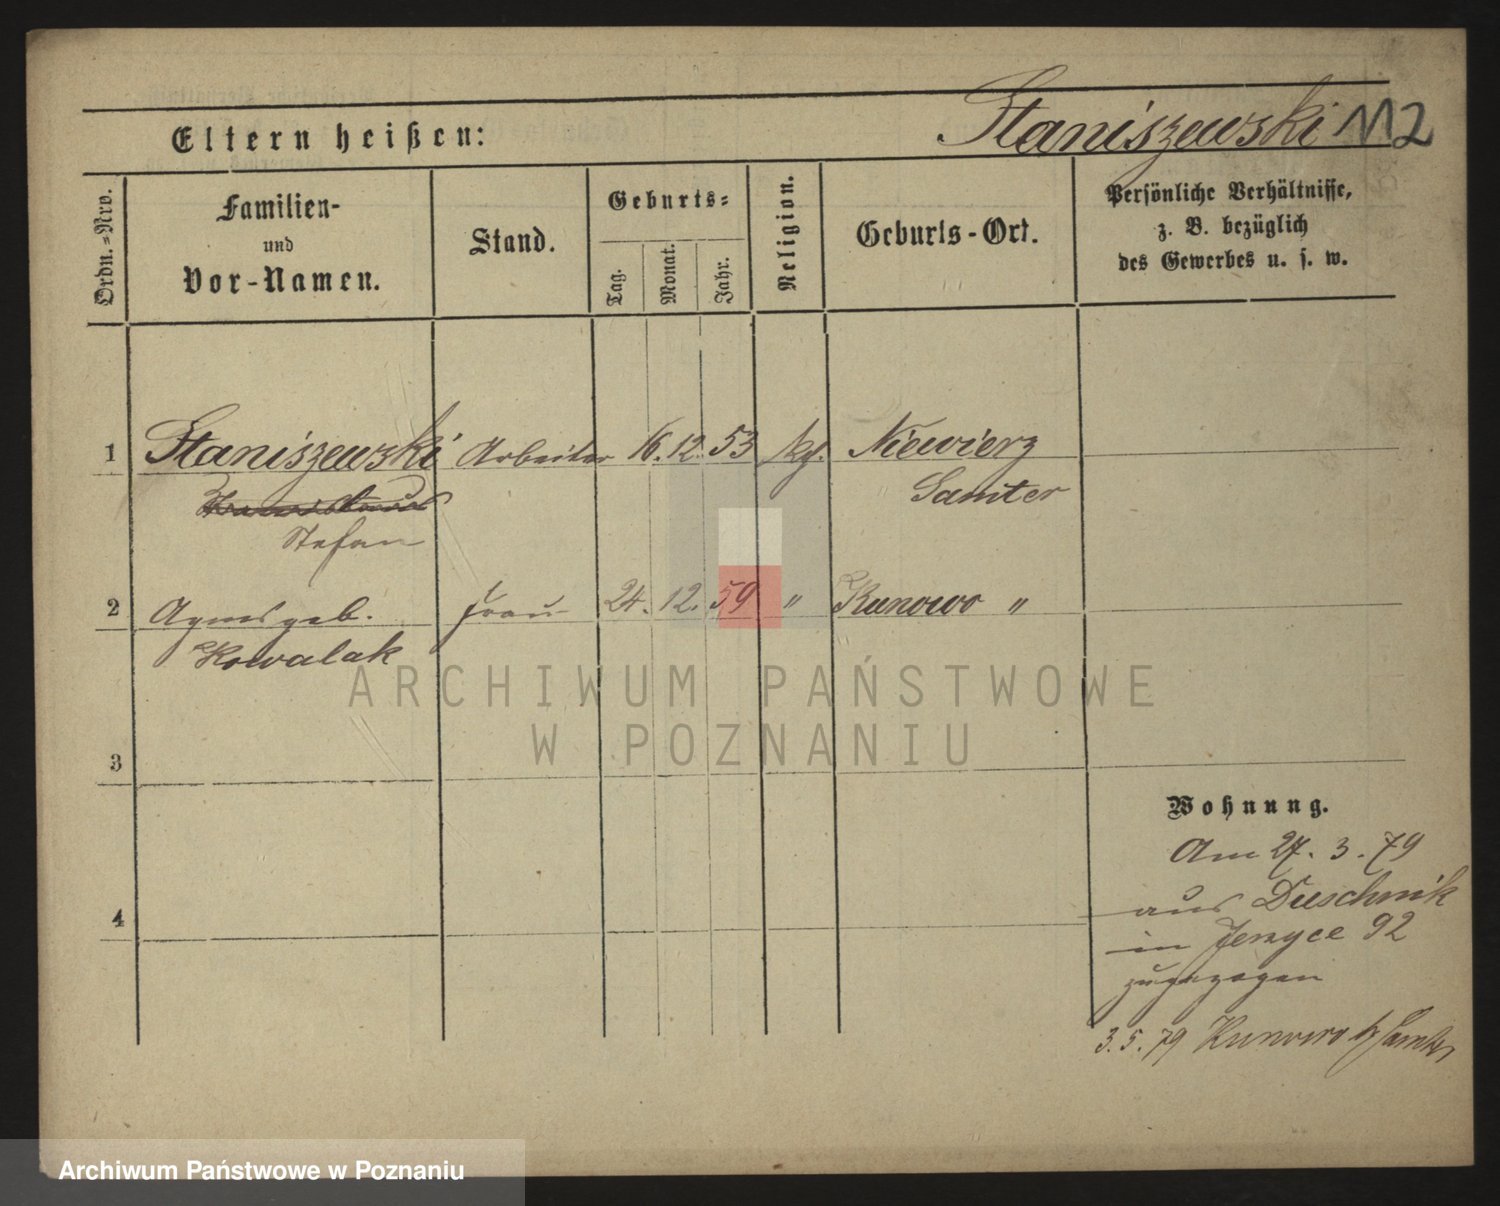 Staniszewski 112
Eltern heißen:
Ordn.=Nro.
Familien-
und
Vor-Namen.
Stand.
Geburts=
Tag.
Monat.
Jahr.
Religion.
Geburts-Ort.
Persönliche Verhältnisse,
z. B. bezüglich
des Gewerbes u. s. w.
1 Staniszewski Arbeiter 16. 12. 53 kth. Niewierz
Samter
Stefan
2 Agnes geb. Frau 24. 12. 59 " Kunowo "
Kowalak
ARCHIWUM PAŃSTWOWE
W POZNANIU
3
Wohnung.
Am 27. 3. 79
aus Duschnik
4
in Jerzyce 92
zugezogen
3. 5. 79 Kunowo b/ Samter
Archiwum Państwowe w Poznaniu